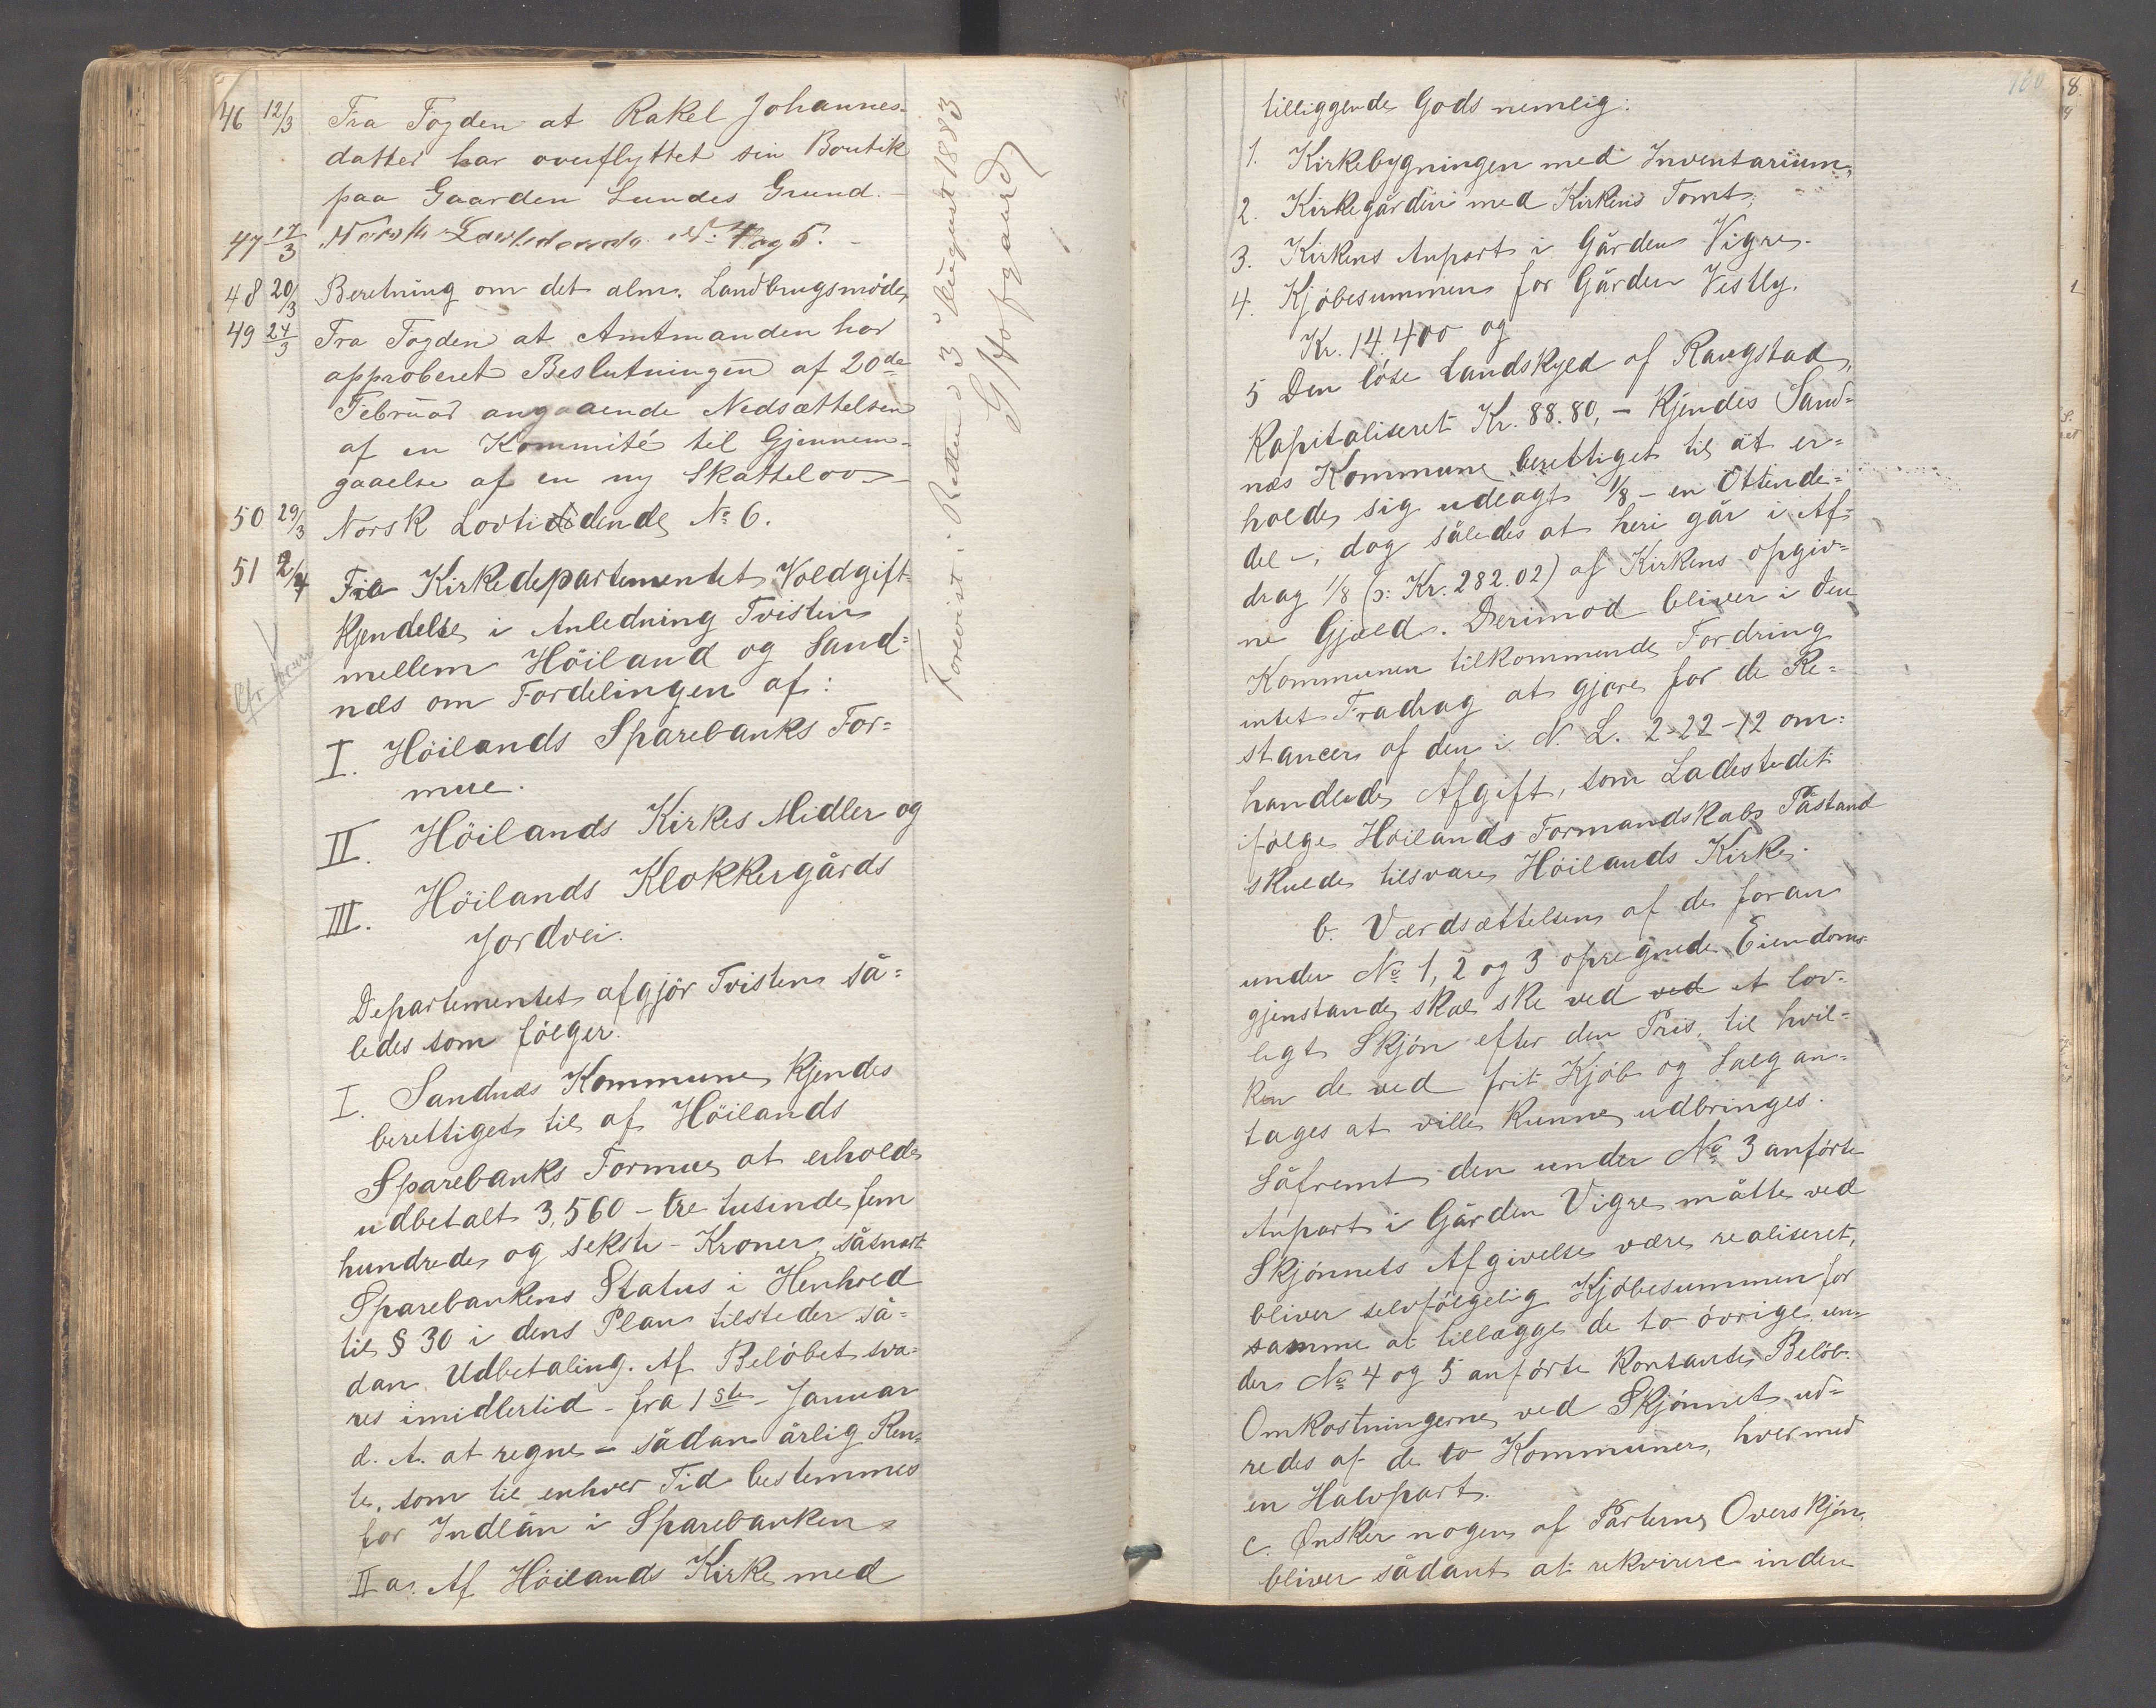 46 12/3 Fra Fogden at Rakel Johannes-
datter har overflyttet sin Boutik
paa Gaarden Lundes Grund.-
47 17/3 Norsk Lovtidende No: 4 og 5.-
48 20/3 Beretning om det alm. Landbrugsmöde
49 24/3 Fra Fogden at Amtmanden har
approberet Beslutningen af 20de
Februar angaaende Nedsættelsen
af en Kommité til Gjennem-
gaaelse af en ny Skattelov-
50 29/3 Norsk Lovtidende No 6.
51 2/4 Fra Kirkedepartementet Voldgift-
Kjendelse i Anledning Tvisten
mellem Höiland og Sand=
næs om Fordelingen af:
I. Höilands Sparebanks For=
mue.
II. Höilands Kirkes Midler og
III. Höilands Klokkergårds
Jordvei.
Departementet afgjör Tvisten så=
ledes som fölger.
I. Sandnæs Kommune kjendes
berettiget til af Höilands
Sparebanks Formue at erholde
udbetalt 3,560 - tre tusinde fem
hundrede og seksti - Kroner, såsnart
Sparebankens Status i Henhold
til § 30 i dens Plan tilsteder så=
dan Udbetaling. Af Belöbet sva=
res imidlertid - fra 1ste Januar
d. A. at regne - sådan årlig Ren=
te, som til enhver Tid bestemmes
for Indlån i Sparebanken
II a. Af Höilands Kirke med
Forevist i Retten d 3 August 1883
tilliggende Gods nemlig:
1. Kirkebygningen med Inventarium,
2. Kirkegården med Kirkens Tomt,
3. Kirkens Anpart i Gården Vigre.
4. Kjöbesummen for Gården Vestly.
Kr. 14.400 og
5 Den löse Landskyld af Raugstad,
Kapitaliseret Kr. 88.80, - Kjendes Sand=
næs Kommune berettiget til at er=
holde sig udlagt 1/8 - en Ottende=
del -, dog således at heri går i Af=
drag 1/8 (o: Kr. 282.02) af Kirkens opgiv=
ne Gjæld. Derimod bliver i den
Kommunen tilkommende Fordring
intet Fradrag at gjøre for de Re=
stancer af den i N. L. 2-22-12 om=
handlede Afgift, som Ladestedet
ifölge Höilands Formandskabs Påstand
skulde tilsvare Höilands Kirke.
b. Værdsættelsen af de foran
under No 1, 2 og 3 opregnede Eiendoms-
gjenstande skal ske ved ved et lov-
ligt Skjön efter den Pris, til hvil=
ken de ved frit Kjöb og Salg an=
tages at ville kunne udbringes.
Såfremt den under No 3 anförte
Anpart i Gården Vigre måtte ved
Skjönnets Afgivelse være realiseret,
bliver selvfölgelig Kjöbesummen for
samme at tillægge de to övrige un=
der No 4 og 5 anförte Kontante Belöb.
Omkostningerne ved Skjönnet ud=
redes af de to Kommuner, hver med
en Halvpart.
c. Ønsker nogen af Parterne Overskjön,
bliver sådant at rekvirere inden